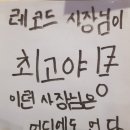 레코드 사장님이
최고야
이런 사장님은
어디에도 없다